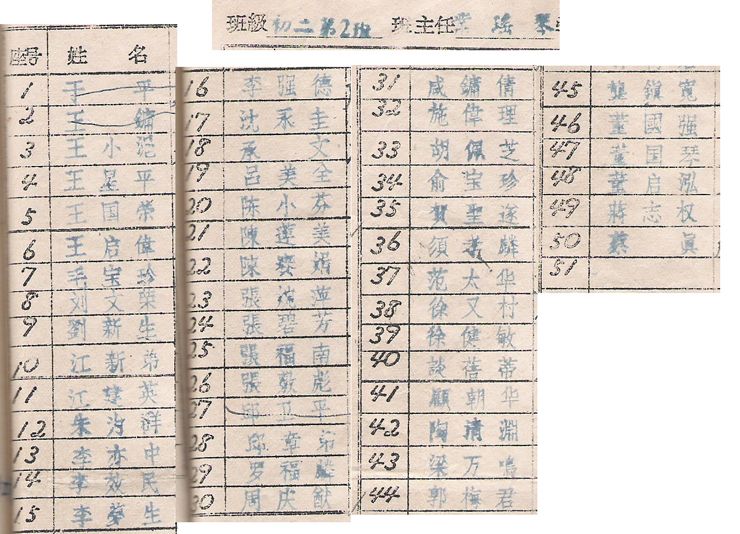 班級 初二第2班 班主任 葉瑤琴
座号 姓 名
1 于 平
2 王
3 王小
4 王星平
5 王国荣
6 王启偉
7 毛宝珍
8 刘文
9 劉新生
10 江新弟
11 江 英
12 朱 祥
13 李亦中
14 李效民
15 李 生
16 李强德
17 沈丕圭
18 承 文
19 呂美全
20 陈小芬
21 陳蓮美
22 陳 娟
23 張 萍
24 張碧芳
25 張福南
26 張 彪
27 邱卫平
28 邱章弟
29 罗福麟
30 周庆猷
31 咸鏞倩
32 施偉理
33 胡佩芝
34 俞宝珍
35 賀聖遂
36 須 麟
37 范太华
38 徐又村
39 徐健敏
40 談蓓蒂
41 顧朝华
42 陶清淵
43 梁万鳴
44 郭梅君
45 龔鎮寬
46 董國强
47 董国琴
48 董启泓
49 蔣志权
50 蔡 眞
51